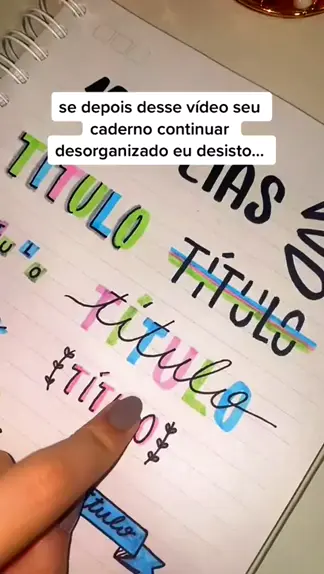 se depois desse vídeo seu
caderno continuar
desorganizado eu desisto...
CIAS
TÍTULO
TÍTULO
TULO
TÍTULO
título
TÍTULO
título